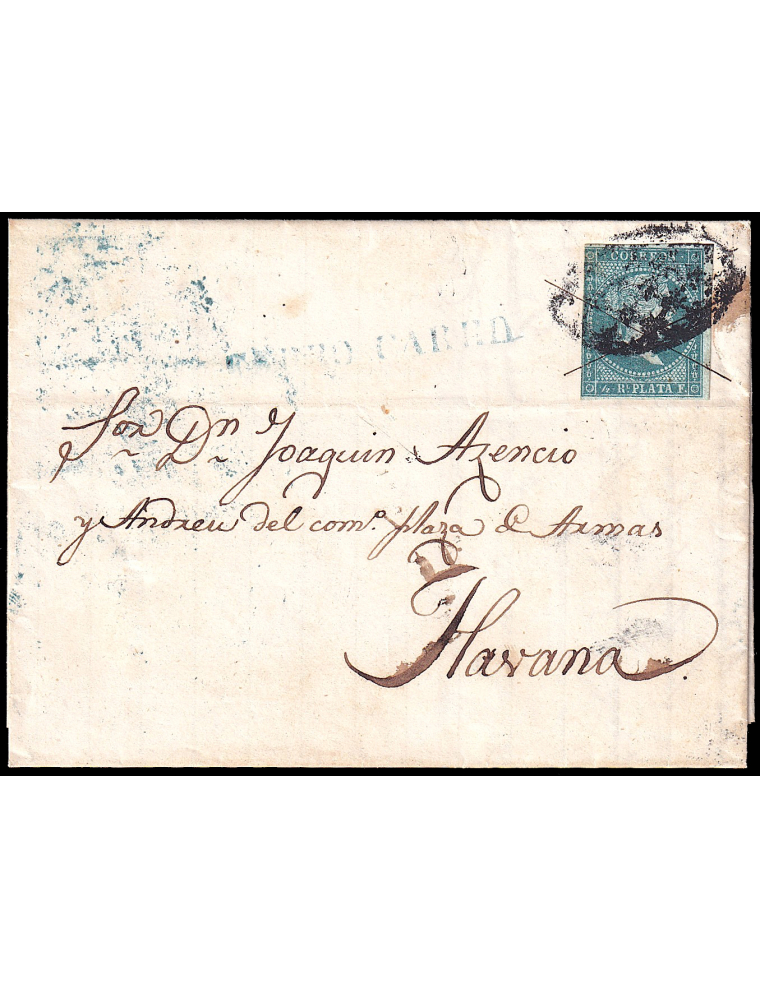 CORREOS
½ Rl. PLATA F.
Sor. Dn. Joaquin Azencio
y Andreu del como. plaza de Armas
Havana